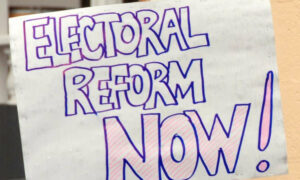 ELECTORAL
REFORM
NOW!